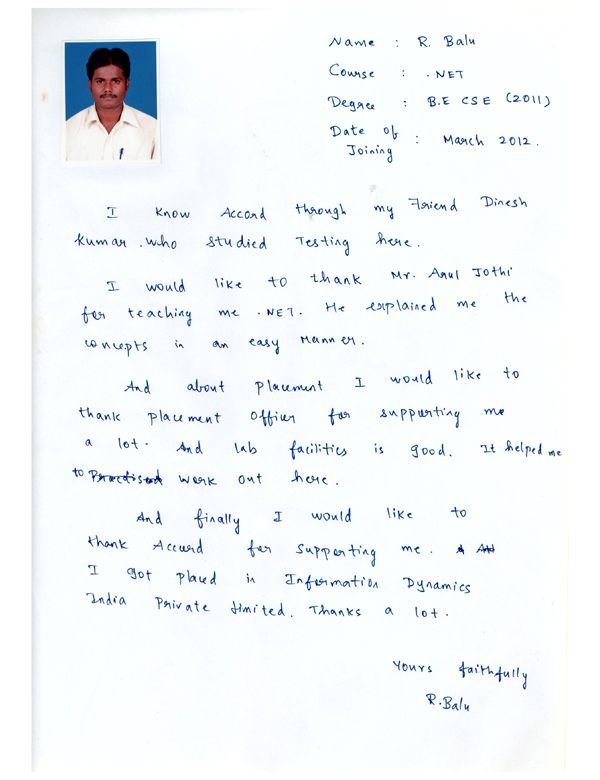 Name : R. Balu
Course : .NET
Degree : B.E CSE (2011)
Date of
Joining : March 2012.
I know Accord through my Friend Dinesh
Kumar. Who studied Testing here.
I would like to thank Mr. Arul Jothi
for teaching me .NET. He explained me the
concepts in an easy manner.
And about placement I would like to
thank placement Officer for supporting me
a lot. And lab facilities is good. It helped me
to work out here.
And finally I would like to
thank Accord for supporting me.
I got placed in Information Dynamics
India Private Limited. Thanks a lot.
Yours faithfully
R. Balu